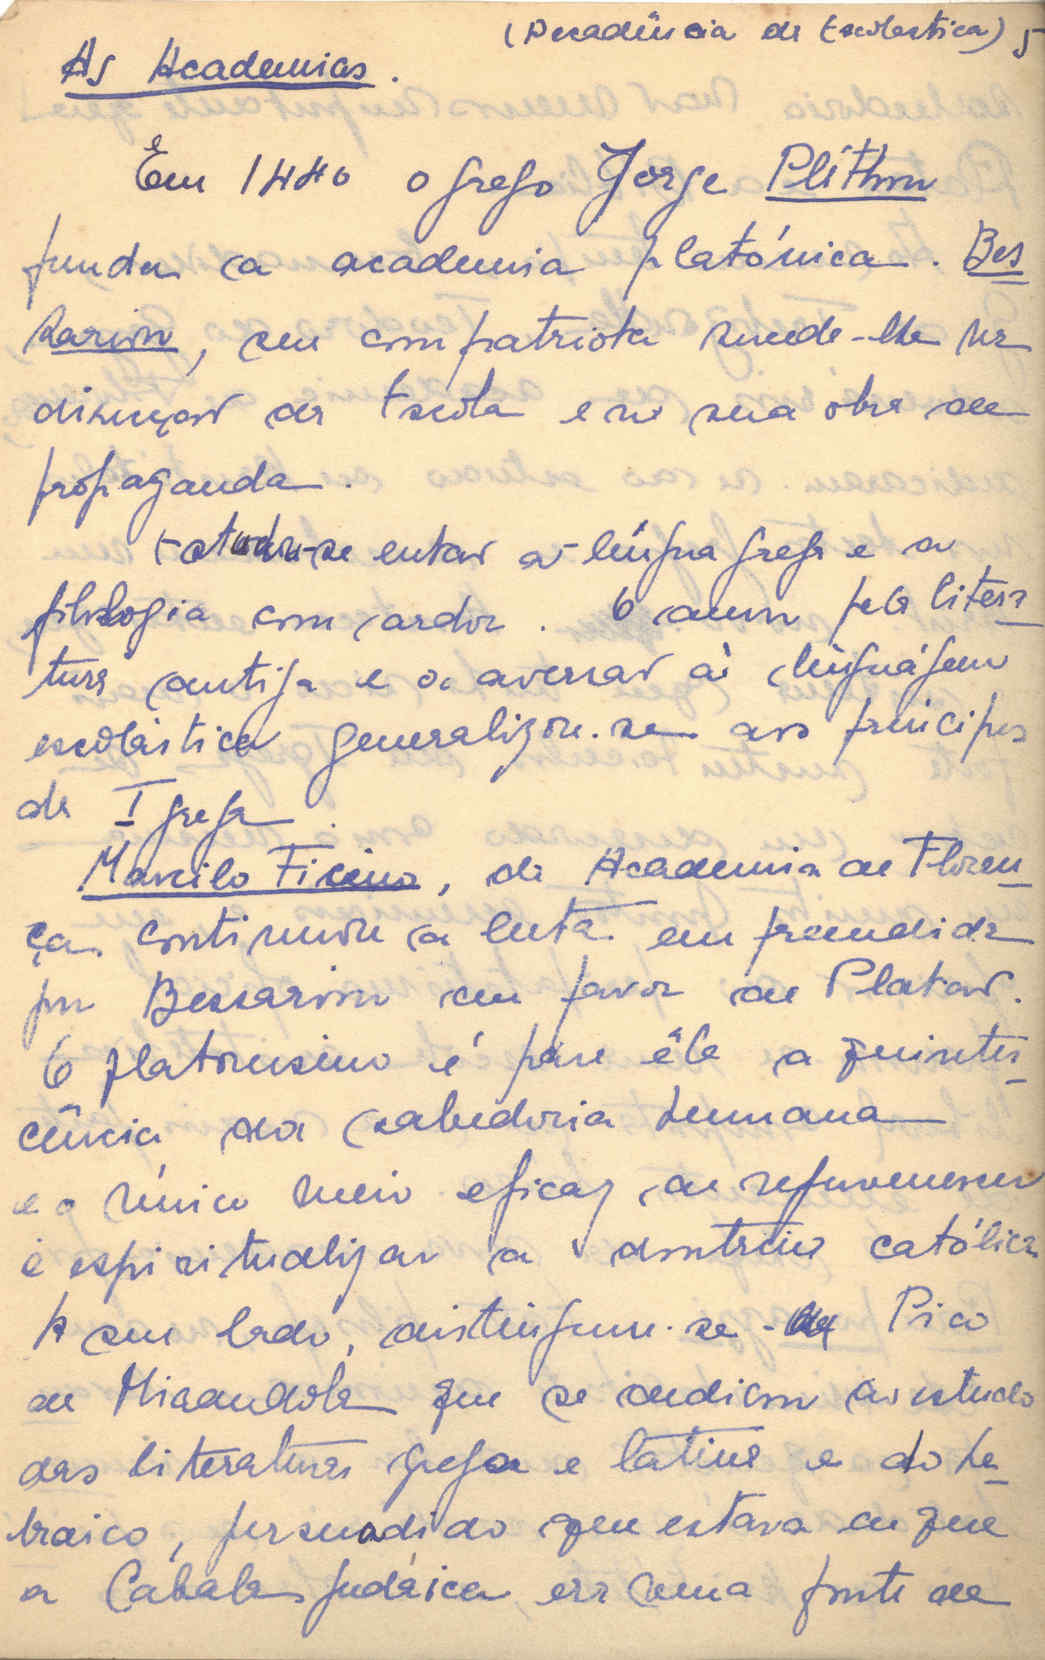 (Decadência da Escolástica) 5
As Academias.
Em 1440 o grego Jorge Plíthon
funda a academia platónica. Bes
sarion, seu compatriota sucede-lhe na
direcção da Escola e na sua obra de
propaganda.
Estudou-se então a língua grega e a
filologia com ardor. O amor pela litera
tura antiga e a aversão à linguágem
escolástica generalizou-se aos príncipes
da Igreja.
Marcilo Ficino, da Academia de Floren
ça continuou a luta empreendida
por Bessarion em favor de Platão.
O platonismo é para êle a quintes
cência da sabedoria humana
e o único meio eficaz de rejuvenescer
e espiritualizar a doutrina católica
A seu lado, distingue-se Pico
de Mirandola que se dedicou ao estudo
das literaturas grega e latina e do he
braico, persuadido que estava de que
a Cabala judáica, era uma fonte de